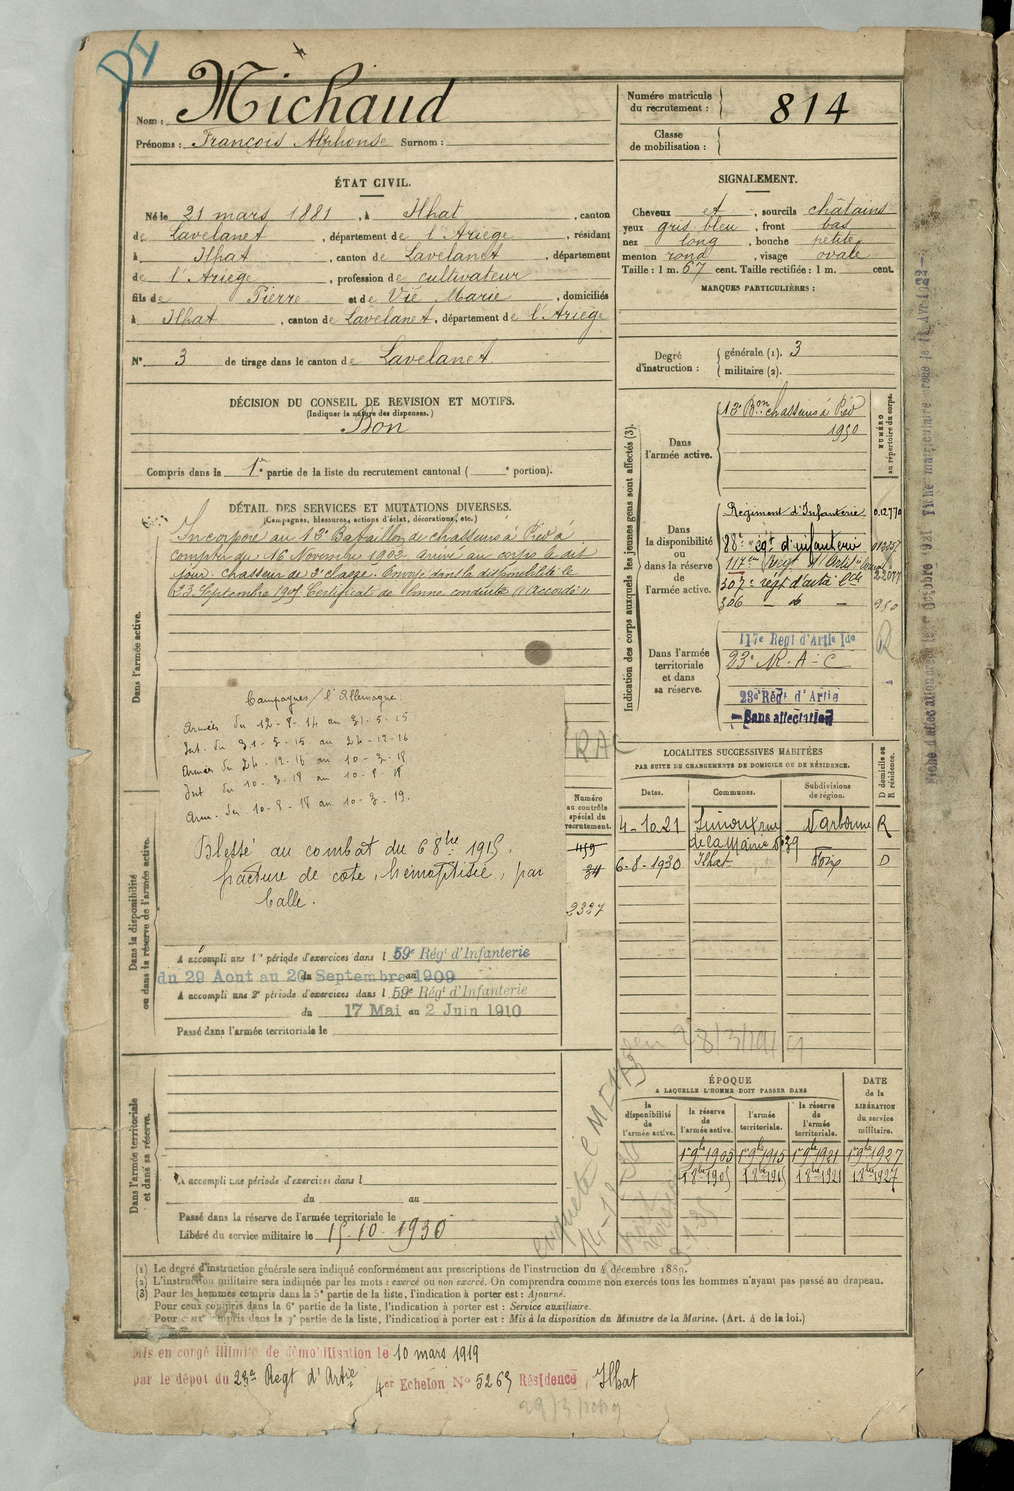 Nom : Michaud
Prénoms : François Alphonse Surnom :
Numéro matricule du recrutement : 814
Classe de mobilisation :
ÉTAT CIVIL.
Né le 21 mars 1881, à Ilhat, canton
de Lavelanet, département de l'Ariège, résidant
à Ilhat, canton de Lavelanet, département
de l'Ariège, profession de cultivateur
fils de Pierre et de Vié Marie, domiciliés
à Ilhat, canton de Lavelanet, département de l'Ariège
N° 3 de tirage dans le canton de Lavelanet.
SIGNALEMENT.
Cheveux et, sourcils châtains
yeux gris bleu, front bas
nez long, bouche petite
menton rond, visage ovale
Taille : 1 m. 67 cent. Taille rectifiée : 1 m. cent.
MARQUES PARTICULIÈRES :
Degré d'instruction : générale (1). 3
militaire (2).
DÉCISION DU CONSEIL DE REVISION ET MOTIFS.
(Indiquer la nature des dispenses.)
Bon
Compris dans la 1re partie de la liste du recrutement cantonal ( e portion).
DÉTAIL DES SERVICES ET MUTATIONS DIVERSES.
(Campagnes, blessures, actions d'éclat, décorations, etc.)
Dans l'armée active.
Incorporé au 13e Bataillon de chasseurs à Pied à
compter du 16 Novembre 1902 arrivé au corps le dit
jour. chasseur de 2e classe. Envoyé dans la disponibilité le
23 Septembre 1905 Certificat de bonne conduite "Accordé"
Campagnes / l'Allemagne
Armées du 12-8-14 au 31-5-15
Int. du 31-5-15 au 24-12-16
Armées du 24-12-16 au 10-3-18
Int du 10-3-18 au 10-8-18
Arm. du 10-8-18 au 10-3-19.
Blessé au combat du 6 8bre 1915.
fracture de côte, hémoptisie, par
balle.
Dans la disponibilité ou dans la réserve de l'armée active.
A accompli une 1re période d'exercices dans l 59e Régt d'Infanterie
du 29 Aout au 20 Septembre 1909
A accompli une 2e période d'exercices dans l 59e Régt d'Infanterie
du 17 Mai au 2 Juin 1910
Passé dans l'armée territoriale le
Dans l'armée territoriale et dans sa réserve.
A accompli une période d'exercices dans l
du au
Passé dans la réserve de l'armée territoriale le
Libéré du service militaire le 15-10-1930
Indication des corps auxquels les jeunes gens sont affectés (3).
NUMÉRO au répertoire du corps.
Dans l'armée active.
13e Bon chasseurs à Pied
1950
Dans la disponibilité ou dans la réserve de l'armée active.
Régiment d'Infanterie
88e régt d'infanterie
117e Régt d'Artie
507e régt d'artie
306 - do -
Dans l'armée territoriale et dans sa réserve.
117e Regt d'Artie lde
23e R.A.C
23e Régt d'Artie
Sans affectation
RAC
Numéro au contrôle spécial du recrutement.
2327
LOCALITÉS SUCCESSIVES HABITÉES
PAR SUITE DE CHANGEMENTS DE DOMICILE OU DE RÉSIDENCE.
Dates. Communes. Subdivisions de région. D domicile ou R résidence.
4-10.21 Limoux rue de la Mairie n°39 Narbonne R
6-8-1930 Ilhat Foix D
ÉPOQUE
A LAQUELLE L'HOMME DOIT PASSER DANS
la disponibilité de l'armée active. la réserve de l'armée active. l'armée territoriale. la réserve de l'armée territoriale.
DATE de la LIBÉRATION du service militaire.
1er 9bre 1905 1er 9bre 1915 1er 9bre 1921 1er 9bre 1927
1 8bre 1905 1 8bre 1915 1 8bre 1921 1 8bre 1927
(1) Le degré d'instruction générale sera indiqué conformément aux prescriptions de l'instruction du 4 décembre 1889.
(2) L'instruction militaire sera indiquée par les mots : exercé ou non exercé. On comprendra comme non exercés tous les hommes n'ayant pas passé au drapeau.
(3) Pour les hommes compris dans la 5e partie de la liste, l'indication à porter est : Ajourné.
Pour ceux compris dans la 6e partie de la liste, l'indication à porter est : Service auxiliaire.
Pour ceux compris dans la 7e partie de la liste, l'indication à porter est : Mis à la disposition du Ministre de la Marine. (Art. 4 de la loi.)
Mis en congé illimité de démobilisation le 10 mars 1919
par le dépôt du 23e Regt d'Artie 4er Echelon N° 5263 Résidence, Ilhat